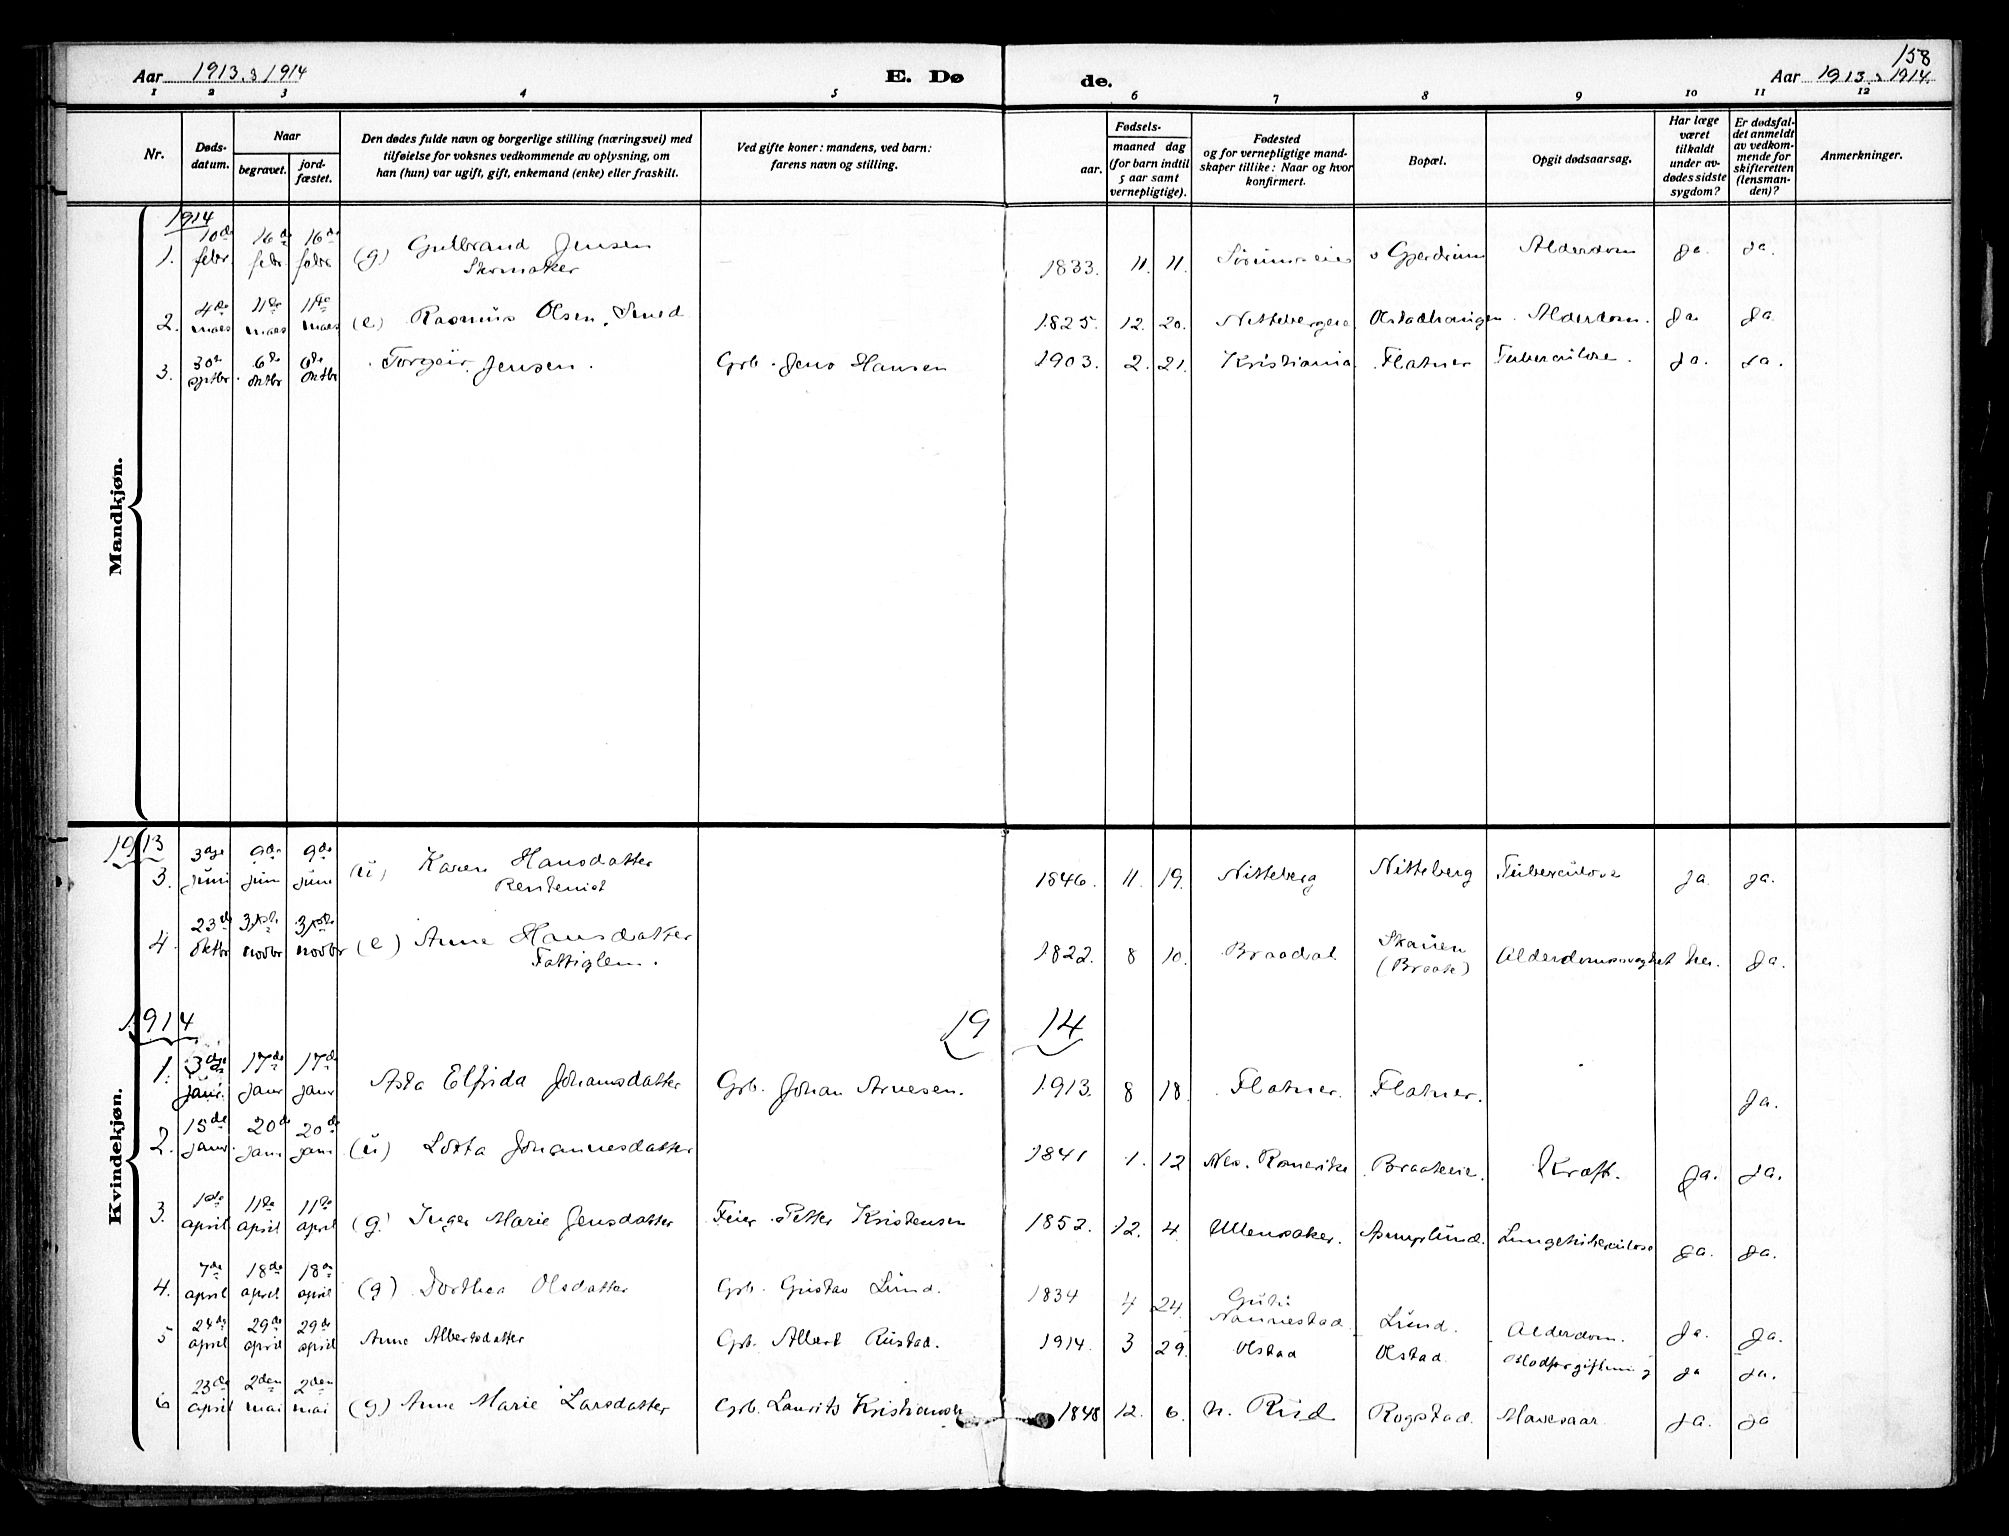 158
Aar 1913 & 1914 E. Dø de. Aar 1913 & 1914.
1 2 3 4 5 6 7 8 9 10 11 12
Nr.
Døds-
datum.
Naar
begravet.
jord-
fæstet.
Den dødes fulde navn og borgerlige stilling (næringsvei) med
tilføielse for voksnes vedkommende av oplysning, om
han (hun) var ugift, gift, enkemand (enke) eller fraskilt.
Ved gifte koner: mandens, ved barn:
farens navn og stilling.
Fødsels-
aar.
maaned dag
(for barn indtil
5 aar samt
vernepligtige).
Fødested
og for vernepligtige mand-
skaper tillike: Naar og hvor
konfirmert.
Bopæl.
Opgit dødsaarsag.
Har læge
været
tilkaldt
under av-
dødes sidste
sygdom?
Er dødsfal-
det anmeldt
av vedkom-
mende for
skifteretten
(lensman-
den)?
Anmerkninger.
Mandkjøn.
1914
1. 10de febr. 16de febr 16de febr (g) Gulbrand Jensen 1833. 11. 11. Gjerdrum Alderdom Ja. Ja.
Skomaker
2. 4de mars 11te mars 11te mars (e) Rasmus Olsen, Smed 1825. 12. 20. Alderdom. Ja Ja
3. 30te septbr. 6te oktbr 6te oktbr Torgeir Jensen. Grb. Jens Hansen 1903. 2. 21. Kristiania Flatner Tuberculose. Ja. Ja.
Kvindekjøn.
1913
3. 3dje juni 9de juni 9de juni (u) Karen Hansdatter 1846. 11. 19. Nitteberg Nitteberg Tuberculose Ja. Ja.
Rentenist
4. 23de oktbr novbr novbr (e) Anne Hansdatter 1822. 8 10. Braadal Skauen Alderdomssvaghet Nei. Ja.
Fattiglem. (Braate)
1914 19 14
1. 3dje januar. 17de januar 17de januar Asta Elfrida Johansdatter Grb. Johan Arnesen. 1913. 8 18. Flatner. Flatner. Ja.
2. 15de januar. 20de januar 20de januar (u) Johannesdatter 1841 1. 12 Nes. Romerike Braateeie. Kræft. Ja. Ja.
3. 1ste april 11te april 11te april (g) Inger Marie Jensdatter Feier Petter Kristensen 1852. 12. 4. Ullensaker. Lungetuberculose Ja. Ja.
4. 7de april 18de april 18de april (g) Dorthea Olsdatter Grb. Gustav Lund. 1834 4 24. Nannestad Lund. Alderdom. Ja. Ja.
5 24de april 29de april 29de april Anne Albertsdatter Grb. Albert Rustad. 1914. 3 29. Olstad Olstad Blodforgiftning Ja Ja.
6 23de april 2den mai 2den mai (g) Anne Marie Larsdatter Grb. Laurits Kristiansen 1848 12. 6. n. Rud Rogstad. Mavesaar. Ja. Ja